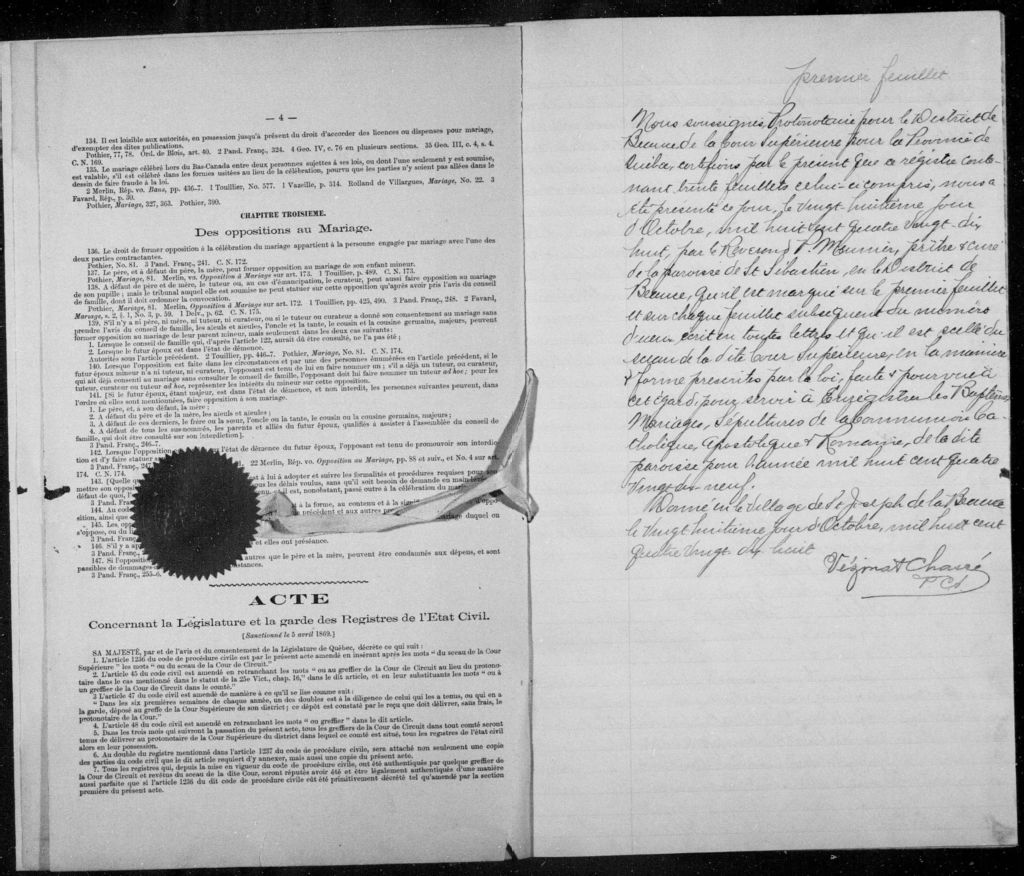 — 4 —
134. Il est loisible aux autorités, en possession jusqu'à présent du droit d'accorder des licences ou dispenses pour mariage,
d'exempter des dites publications.
Pothier, 77, 78. Ord. de Blois, art. 40. 2 Pand. Franç., 324. 4 Geo. IV, c. 76 en plusieurs sections. 35 Geo. III, c. 4, s. 4.
C. N. 169.
135. Le mariage célébré hors du Bas-Canada entre deux personnes sujettes à ses lois, ou dont l'une seulement y est soumise,
est valable, s'il est célébré dans les formes usitées au lieu de la célébration, pourvu que les parties n'y soient pas allées dans le
dessin de faire fraude à la loi.
2 Merlin, Rép. vo. Bans, pp. 436-7. 1 Touillier, No. 577. 1 Vazeille, p. 314. Rolland de Villargues, Mariage, No. 22. 3
Favard, Rép., p. 30.
Pothier, Mariage, 327, 363. Pothier, 390.
CHAPITRE TROISIEME.
Des oppositions au Mariage.
136. Le droit de former opposition à la célébration du mariage appartient à la personne engagée par mariage avec l'une des
deux parties contractantes.
Pothier, No. 81. 3 Pand. Franç., 241. C. N. 172.
137. Le père, et à défaut du père, la mère, peut former opposition au mariage de son enfant mineur.
Pothier, Mariage, 81. Merlin, vo. Opposition à Mariage sur art. 173. 1 Touillier, p. 489. C. N. 173.
138. A défaut de père et de mère, le tuteur ou, au cas d'émancipation, le curateur, peut aussi faire opposition au mariage
de son pupille ; mais le tribunal auquel elle est soumise ne peut statuer sur cette opposition qu'après avoir pris l'avis du conseil
de famille, dont il doit ordonner la convocation.
Pothier, Mariage, 81. Merlin, Opposition à Mariage sur art. 172. 1 Touillier, pp. 425, 490. 3 Pand. Franç., 248. 2 Favard,
Mariage, s. 2, § 1, No. 3, p. 59. 1 Delv., p. 62. C. N. 175.
139. S'il n'y a ni père, ni mère, ni tuteur, ni curateur, ou si le tuteur ou curateur a donné son consentement au mariage sans
prendre l'avis du conseil de famille, les aïeuls et aïeules, l'oncle et la tante, le cousin et la cousine germains, majeurs, peuvent
former opposition au mariage de leur parent mineur, mais seulement dans les deux cas suivants :
1. Lorsque le conseil de famille qui, d'après l'article 122, aurait dû être consulté, ne l'a pas été ;
2. Lorsque le futur époux est dans l'état de démence.
Autorités sous l'article précédent. 2 Touillier, pp. 446-7. Pothier, Mariage, No. 81. C. N. 174.
140. Lorsque opposition est faite dans les circonstances et par une des personnes énumérées en l'article précédent, si le
futur époux mineur n'a ni tuteur, ni curateur, l'opposant est tenu de lui en faire nommer un ; s'il a déjà un tuteur, ou curateur,
qui ait déjà consenti au mariage sans consulter le conseil de famille, l'opposant doit lui faire nommer un tuteur ad hoc ; pour les
tuteur, curateur ou tuteur ad hoc, représenter les intérêts du mineur sur cette opposition.
141. [Si le futur époux, étant majeur, est dans l'état de démence, et non interdit, les personnes suivantes peuvent, dans
l'ordre où elles sont mentionnées, faire opposition à son mariage.
1. Le père, et, à son défaut, la mère ;
2. A défaut du père et de la mère, les aïeuls et aïeules ;
3. A défaut de ces derniers, le frère ou la sœur, l'oncle ou la tante, le cousin ou la cousine germains, majeurs ;
4. A défaut de tous les susnommés, les parents et alliés du futur époux, qualifiés à assister à l'assemblée du conseil de
famille, qui doit être consulté sur son interdiction].
3 Pand. Franç., 246-7.
142. Lorsque l'opposition l'état de démence du futur époux, l'opposant est tenu de promouvoir son interdic-
tion et d'y faire statuer
3 Pand. Franç., 247 22 Merlin, Rép. vo. Opposition au Mariage, pp. 88 et suiv., et No. 4 sur art.
174. C. N. 174.
143. [Quelle est à lui à adopter et suivre les formalités et procédures requises pour
mettre son oppos les délais voulus, sans qu'il soit besoin de demande en
défaut de quoi, est, nonobstant, passé outre à la célébration du mariage
3 Pand. Fra
144. Au à la forme, au contenu et à la
sition, ainsi que précédent et aux autres
145. Les opp mariage duquel on
s'oppose, ou du
3 Pand. Franç. et elles ont préséance.
146. S'il y a
3 Pand. Franç. autres que le père et la mère, peuvent être condamnés aux dépens, et sont
147. Si l'oppositi
passibles de dommages stances.
3 Pand. Franç., 255-6.
ACTE
Concernant la Législature et la garde des Registres de l'Etat Civil.
[Sanctionné le 5 avril 1869.]
SA MAJESTÉ, par et de l'avis et du consentement de la Législature de Québec, décrète ce qui suit :
1. L'article 1236 du code de procédure civile est par le présent acte amendé en insérant après les mots " du sceau de la Cour
Supérieure " les mots " ou du sceau de la Cour de Circuit."
2. L'article 45 du code civil est amendé en retranchant les mots " ou au greffier de la Cour de Circuit au lieu du protono-
taire dans le cas mentionné dans le statut de la 25e Vict., chap. 16," dans le dit article, et en leur substituants les mots " ou à
un greffier de la Cour de Circuit dans le comté."
3 L'article 47 du code civil est amendé de manière à ce qu'il se lise comme suit :
" Dans les six premières semaines de chaque année, un des doubles est à la diligence de celui qui les a tenus, ou qui en a
la garde, déposé au greffe de la Cour Supérieure de son district ; ce dépôt est constaté par le reçu que doit délivrer, sans frais, le
protonotaire de la Cour."
4. L'article 48 du code civil est amendé en retranchant les mots " ou greffier " dans le dit article.
5. Dans les trois mois qui suivront la passation du présent acte, tous les greffiers de la Cour de Circuit dans tout comté seront
tenus de délivrer au protonotaire de la Cour Supérieure du district dans lequel ce comté est situé, tous les registres de l'état civil
alors en leur possession.
6. Au double du registre mentionné dans l'article 1237 du code de procédure civile, sera attaché non seulement une copie
des parties du code civil que le dit article requiert d'y annexer, mais aussi une copie du présent acte.
7. Tous les registres qui, depuis la mise en vigueur du code de procédure civile, ont été authentiqués par quelque greffier de
la Cour de Circuit et revêtus du sceau de la dite Cour, seront réputés avoir été et être légalement authentiqués d'une manière
aussi parfaite que si l'article 1236 du dit code de procédure civile eût été primitivement décrété tel qu'amendé par la section
première du présent acte.
premier feuillet
Nous soussignés, Protonotaire pour le District de
Beauce, de la Cour Supérieure pour la Province de
Québec, certifions par le présent que ce régistre conte-
nant trente feuillets celui-ci compris, nous a
été présenté ce jour, le vingt huitième jour
d'Octobre, mil huit cent quatre vingt dix
huit, par le Révérend prêtre & curé
de la paroisse de St Sébastien, en le District de
Beauce, qu'il est marqué sur le premier feuillet
et sur chaque feuillet subséquent du numéro
d'iceux, écrit en toutes lettres et qu'il est scellé du
sceau de la dite Cour Supérieure, en la manière
& forme prescrites par la loi, faite & pourvue à
cet égard, pour servir à Enregistrer les Baptêmes
Mariages, Sépultures de la Communion Ca-
tholique, Apostolique & Romaine, de la dite
paroisse pour l'année mil huit cent quatre
vingt dix neuf.
Donné, en le Village de St Joseph de la Beauce
le vingt huitième jour d'Octobre, mil huit cent
quatre vingt dix huit
Vézina &
P.C.S.